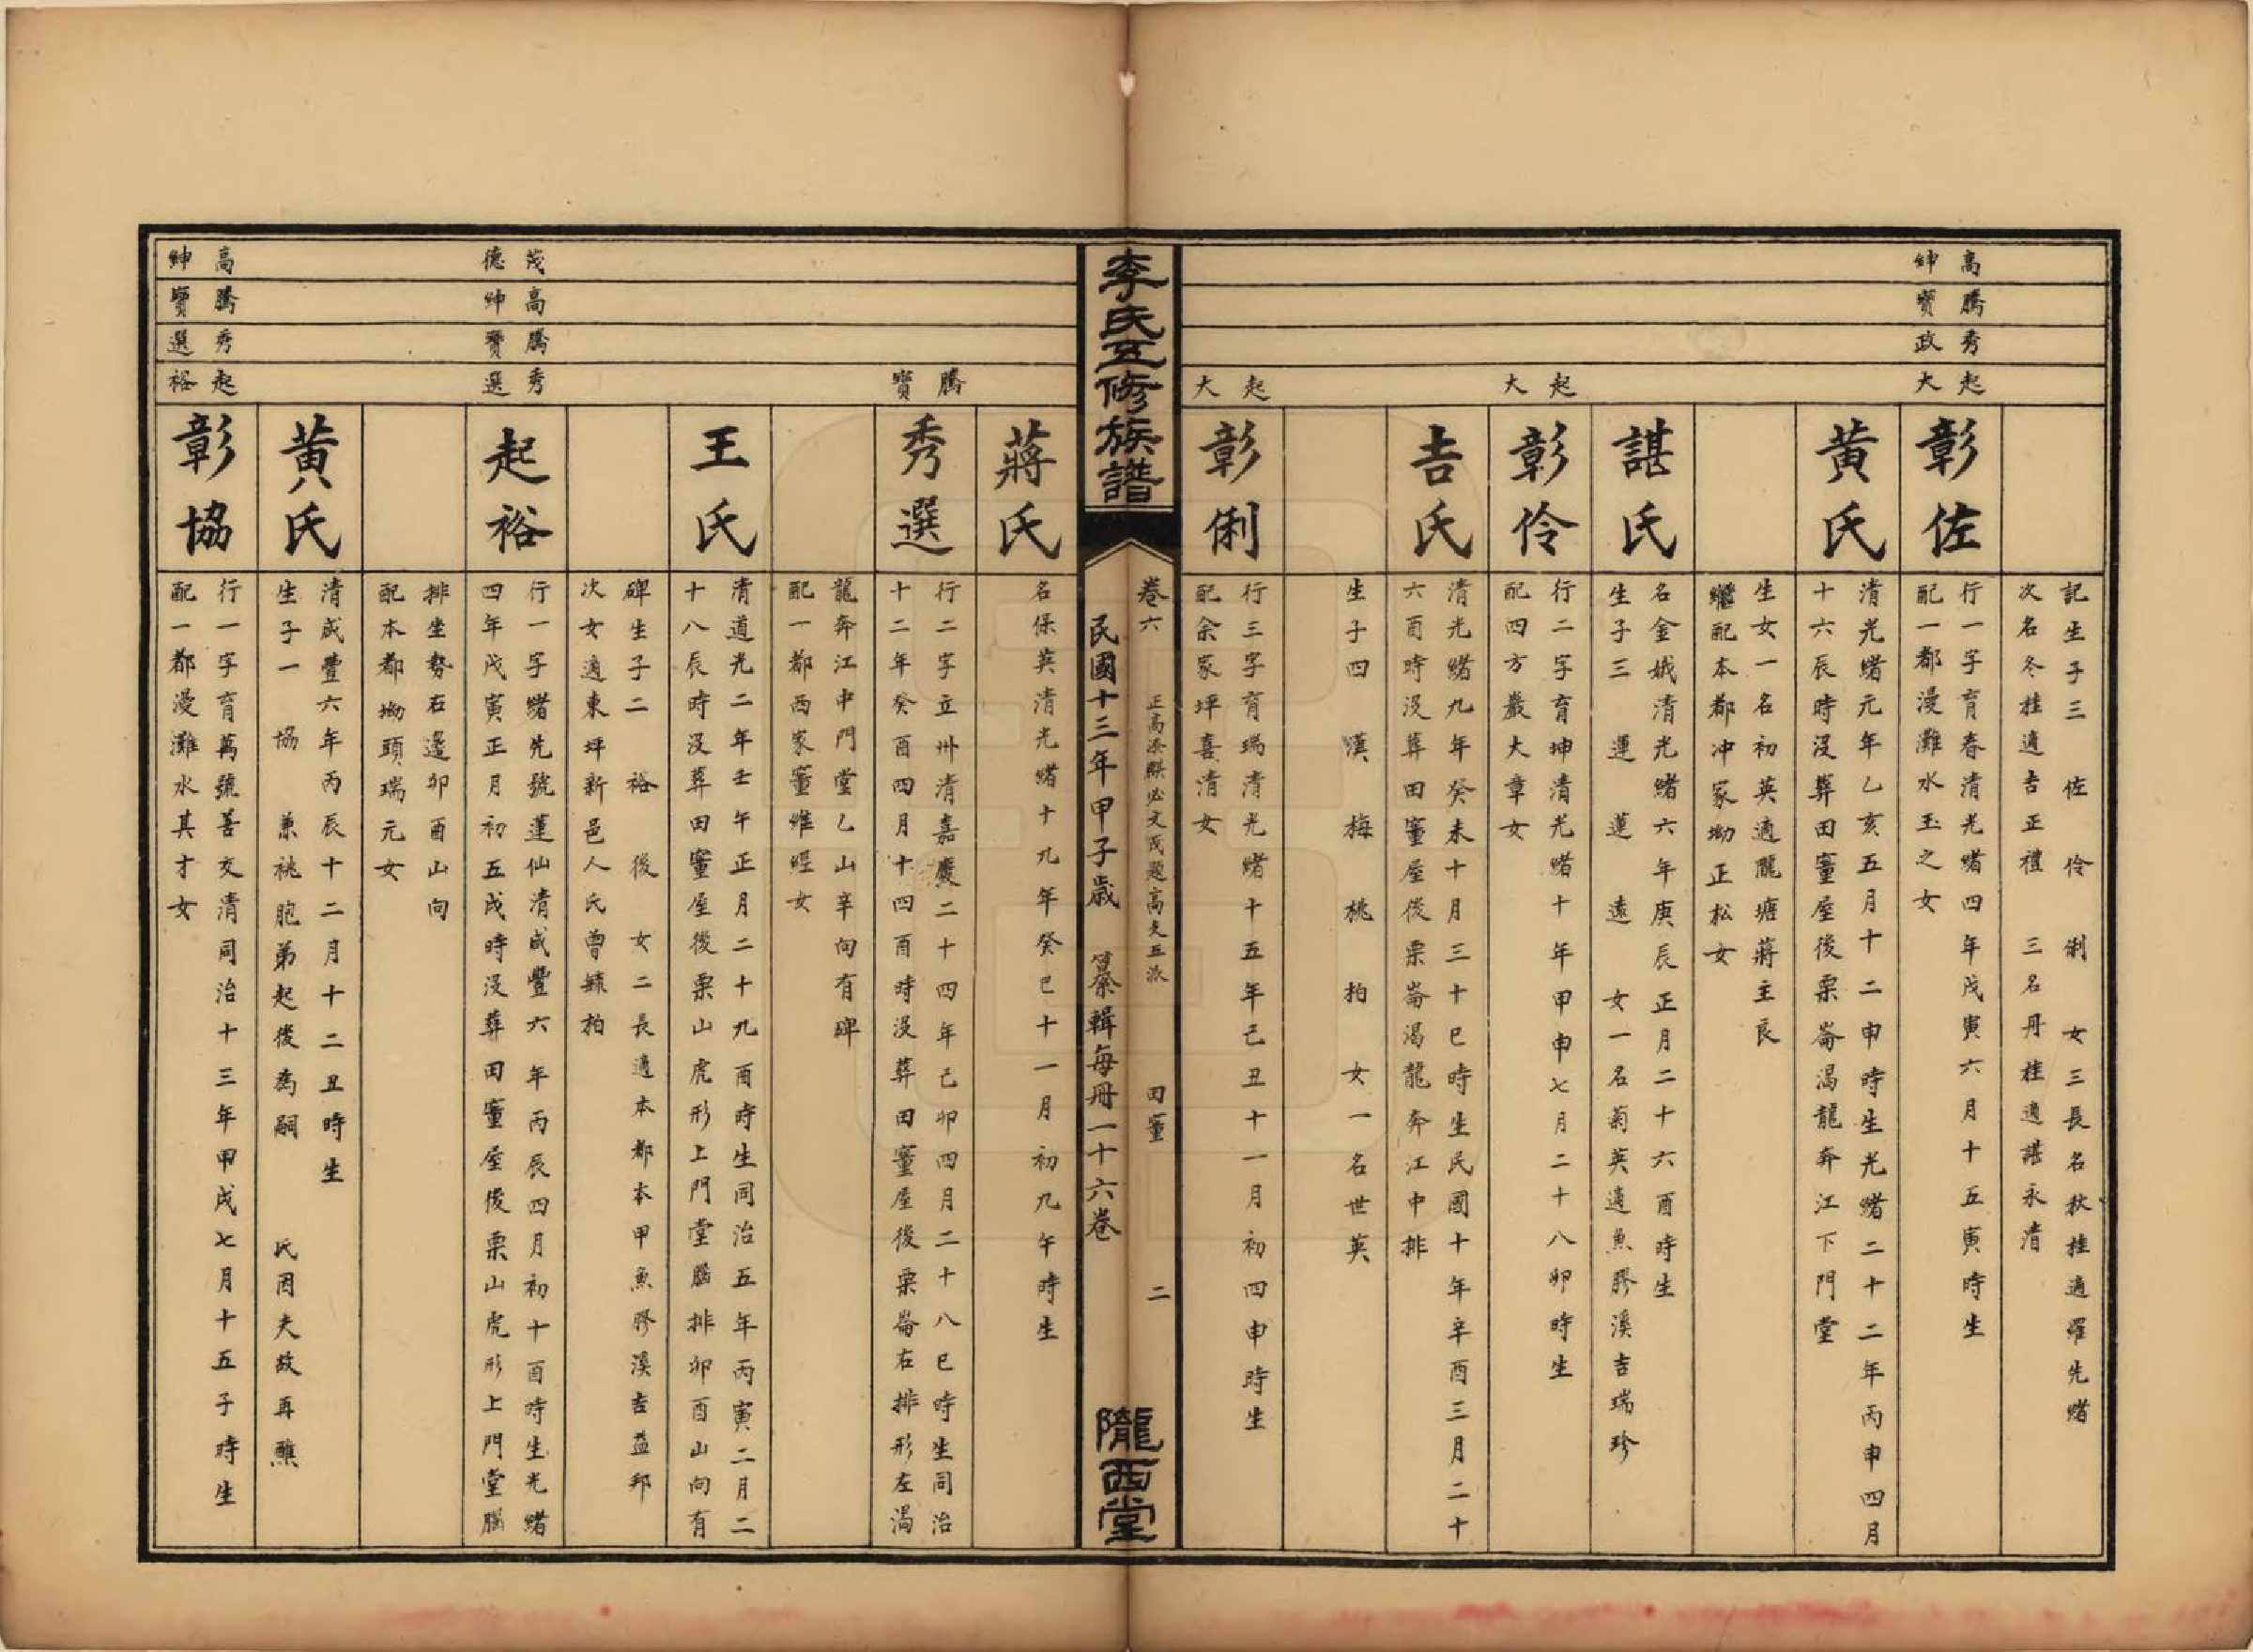 記生子三　佐　伶　俐　女三長名秋桂適羅先緒
次名冬桂適吉正禮　三名丹桂適諶永清
高紳
騰寶
秀政
起大
彰佐
行一字育春清光緒四年戊寅六月十五寅時生
配一都漫灘水玉之女
黃氏
清光緒元年乙亥五月十二申時生光緒二十二年丙申四月
十六辰時沒葬田董屋後栗崙渴龍奔江下門堂
生女一名初英適隴塘蔣主良
繼配本都冲家坳正松女
諶氏
名金娥清光緒六年庚辰正月二十六酉時生
生子三　運　蓮　遠　女一名菊英適魚膠溪吉瑞珍
起大
彰伶
行二字育坤清光緒十年甲申七月二十八卯時生
配四方嚴大章女
吉氏
清光緒九年癸未十月三十巳時生民國十年辛酉三月二十
六酉時沒葬田董屋後栗崙渴龍奔江中排
生子四　漢　梅　桃　柏　女一名世英
起大
彰俐
行三字育瑞清光緒十五年己丑十一月初四申時生
配余家坪喜清女
李氏五修族譜
卷六　田董　二
民國十三年甲子歲　纂輯每冊一十六卷
隴西堂
蔣氏
名保英清光緒十九年癸巳十一月初九午時生
騰寶
秀選
行二字立州清嘉慶二十四年己卯四月二十八巳時生同治
十二年癸酉四月十四酉時沒葬田董屋後栗崙右排形左渴
龍奔江中門堂乙山辛向有碑
配一都西家董維經女
王氏
清道光二年壬午正月二十九酉時生同治五年丙寅二月二
十八辰時沒葬田董屋後栗山虎形上門堂腦排卯酉山向有
碑生子二　裕　後　女二長適本都本甲魚膠溪吉益邦
次女適東坪新邑人氏曾揀柏
茂德
高紳
騰寶
秀選
起裕
行一字緒先號蓮仙清咸豐六年丙辰四月初十酉時生光緒
四年戊寅正月初五戌時沒葬田董屋後栗山虎形上門堂腦
排坐勢右邊卯酉山向
配本都坳頭瑞元女
黃氏
清咸豐六年丙辰十二月十二丑時生
生子一　協　兼祧胞弟起後為嗣　氏因夫故再醮
高紳
騰寶
秀選
起裕
彰協
行一字育萬號善交清同治十三年甲戌七月十五子時生
配一都漫灘水其才女